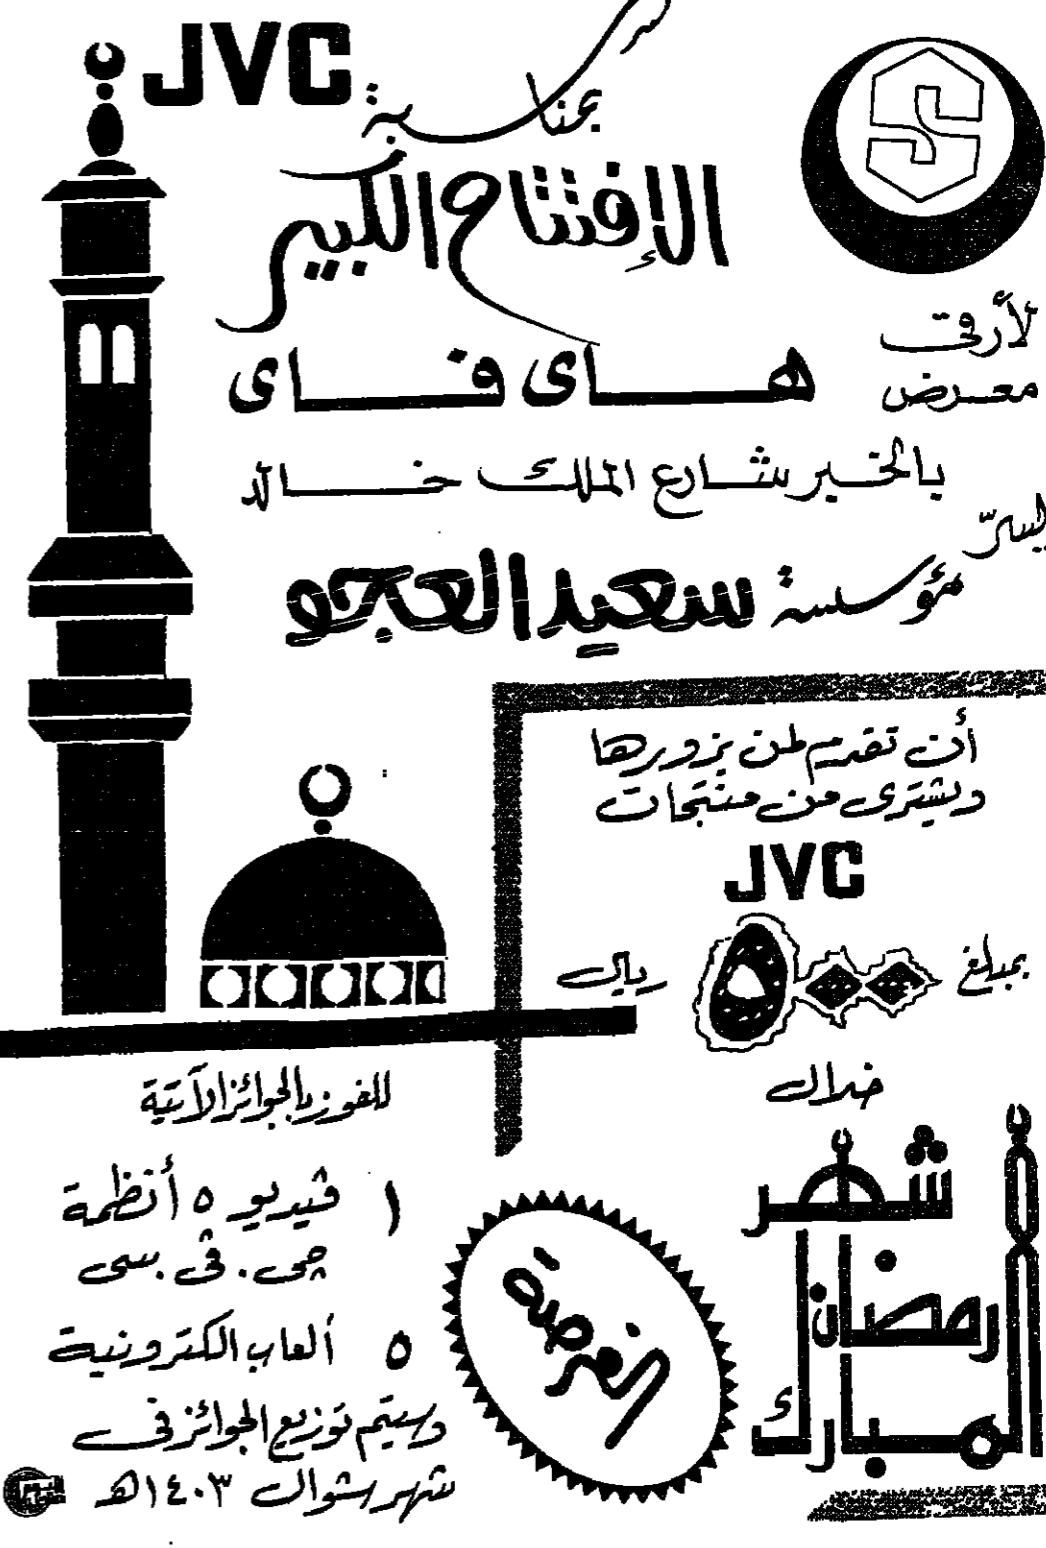 JVC
بمناسبة
الإفتتاح الكبير
لأرقى
معرض
هاى فاى
بالخبر شارع الملك خالد
يسرّ
مؤسسة سعيد العجو
أن تقدم لمن يزورها
ويشترى من منتجات
JVC
بمبلغ ٥٠٠ ريال
خلال
شهر
رمضان
المبارك
الفرصة
للفوز بالجوائز الآتية
١ ڤيديو ٥ أنظمة
چى . ڤى . سى
٥ ألعاب الكترونية
وسيتم توزيع الجوائز فى
شهر شوال ١٤٠٣هـ